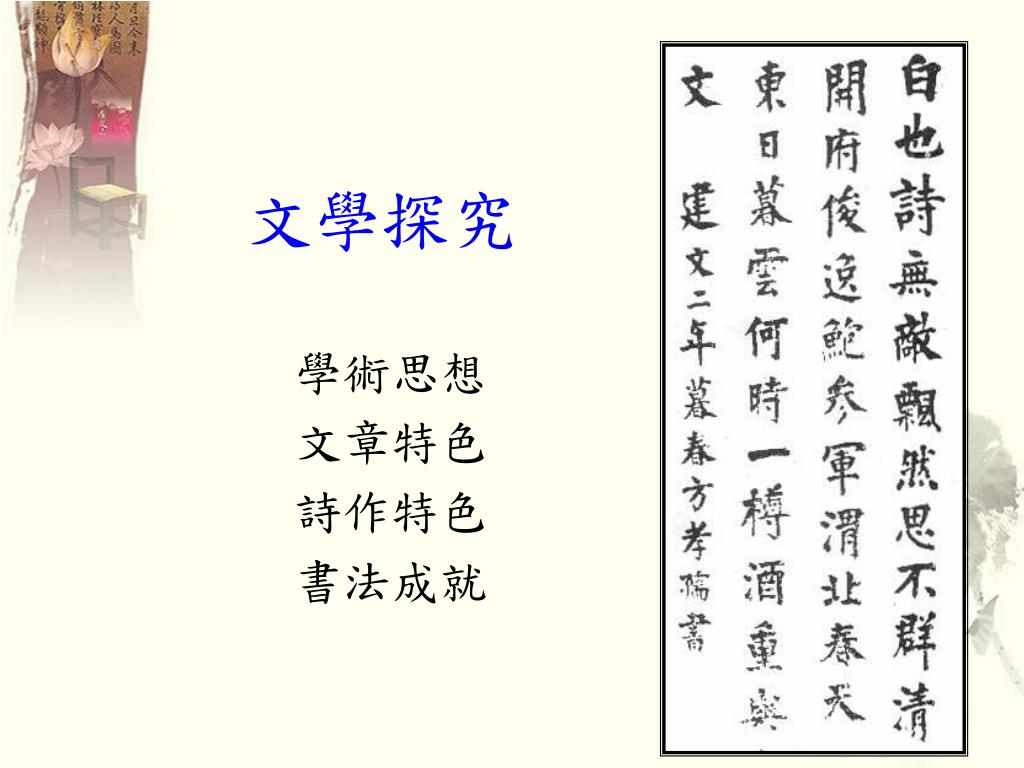 文學探究
學術思想
文章特色
詩作特色
書法成就
白也詩無敵飄然思不群清
開府俊逸鮑參軍渭北春天
東日暮雲何時一樽酒重與
文 建文二年暮春方孝孺書